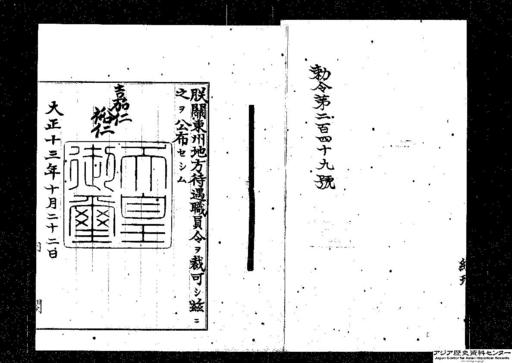 勅令第二百四十九號
朕關東州地方待遇職員令ヲ裁可シ茲ニ
之ヲ公布セシム
嘉仁
裕仁
天皇
御璽
大正十三年十月二十二日
アジア歴史資料センター
Japan Center for Asian Historical Records